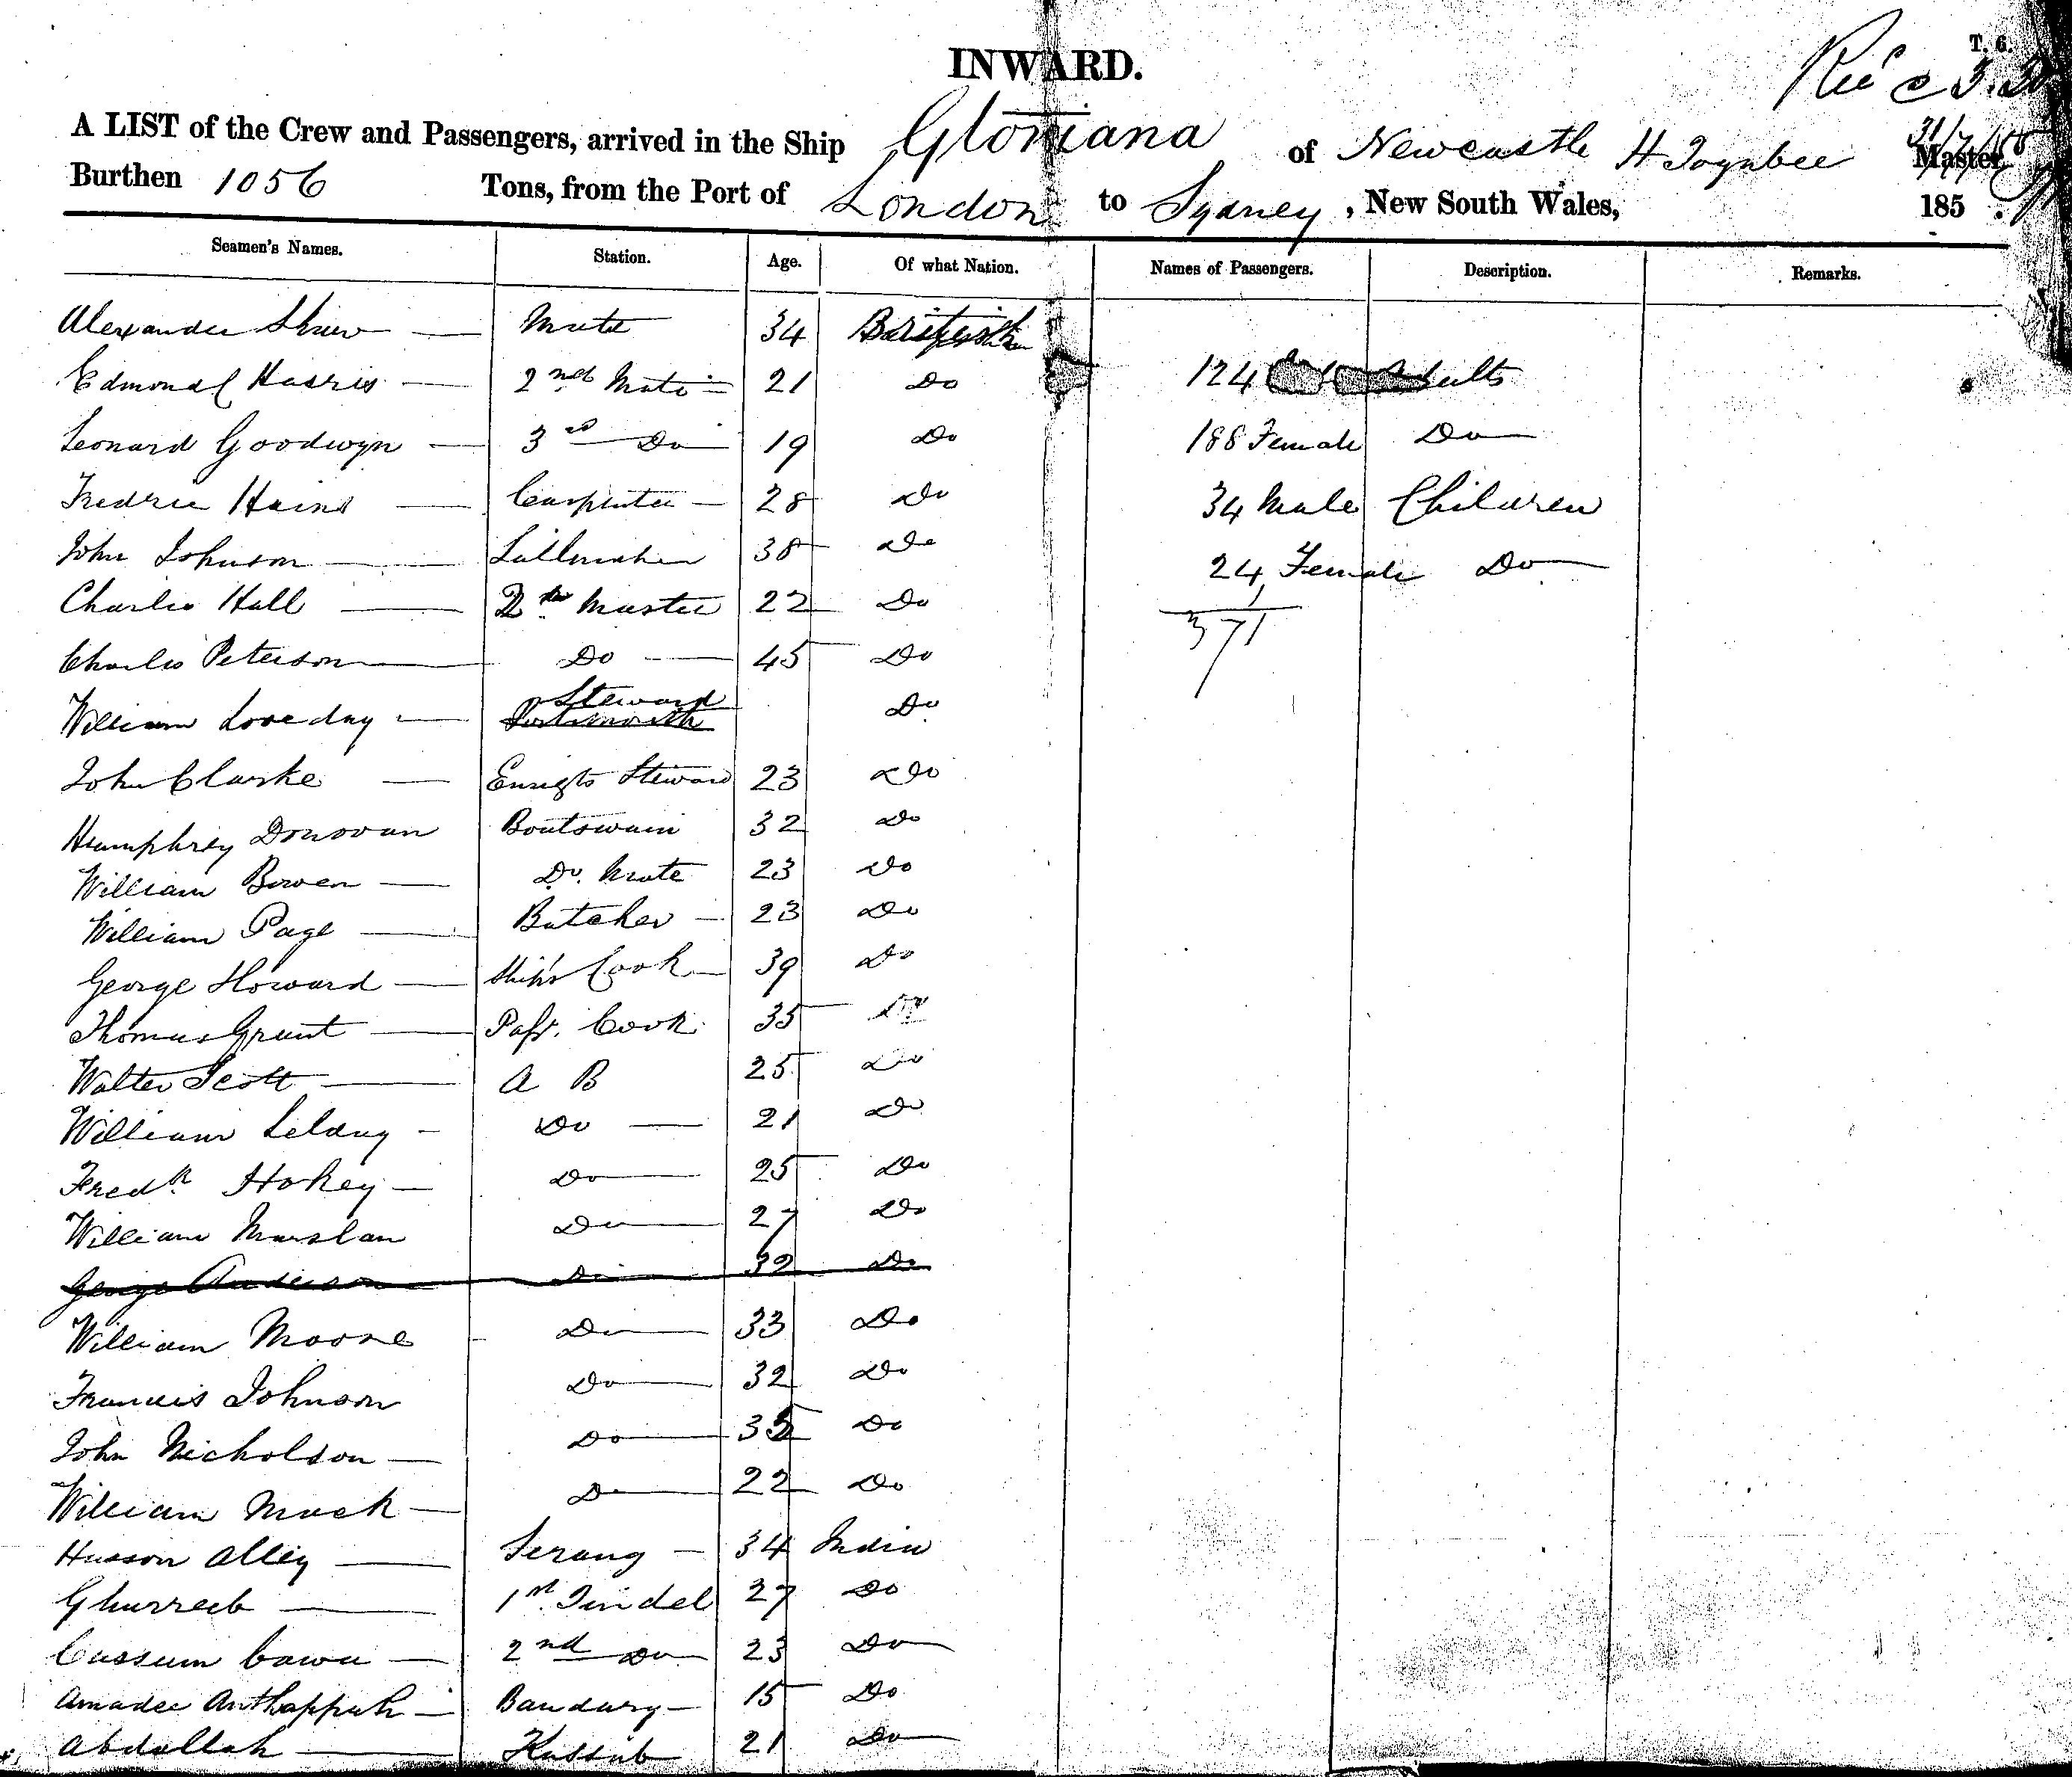 INWARD.
T. 6.
A LIST of the Crew and Passengers, arrived in the Ship Gloriana of Newcastle H Toynbee Master
Burthen 1056 Tons, from the Port of London to Sydney, New South Wales, 185 .
Seamen's Names. Station. Age. Of what Nation. Names of Passengers. Description. Remarks.
Alexander Shaw Mate 34 British
Edmond Harris 2nd Mate 21 Do 124 Adults
Leonard Goodwyn 3rd Do 19 Do 188 Female Do
Fredric Hains Carpenter 28 Do 34 Male Children
John Johnson Sailmaker 38 Do 24 Female Do
Charles Hall Master 22 Do 371
Charles Peterson Do 45 Do
William Loveday Steward Do
John Clarke Steward 23 Do
Humphrey Donovan Boatswain 32 Do
William Bowen Do. Mate 23 Do
William Page Butcher 23 Do
George Howard Ship's Cook 39 Do
Thomas Grant Passr. Cook 35 Do
Walter Scott A B 25 Do
William Do 21 Do
Fredk Hokey Do 25 Do
William Do 27 Do
George Anderson Do 32 Do
William Moore Do 33 Do
Francis Johnson Do 32 Do
John Nicholson Do Do
William Mack Do 22 Do
Husson Alley Serang 34 India
Ghurreeb 1st Tindel 27 Do
Cassum Cawa 2nd Do 23 Do
Amadee Anthappah Bandary 15 Do
Abdallah Kassab 21 Do